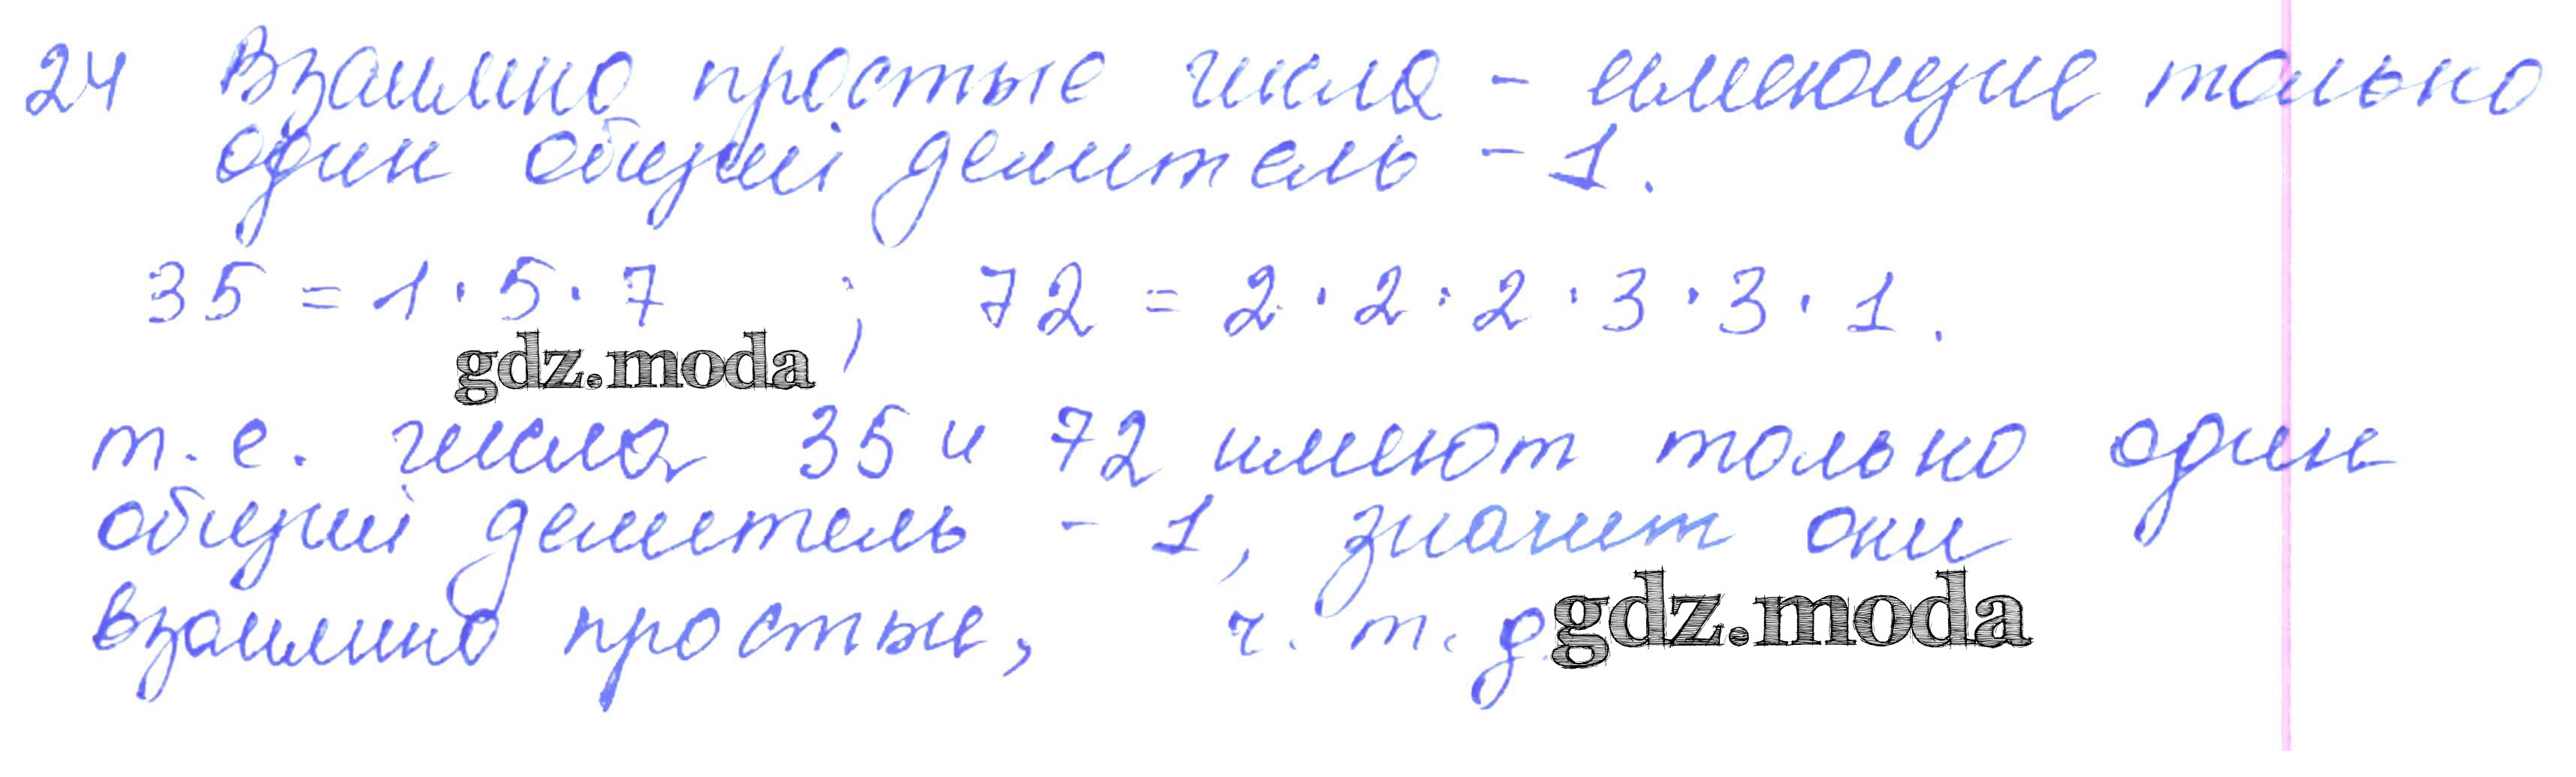 24 Взаимно простые числа - имеющие только
один общий делитель - 1.
35 = 1 · 5 · 7 ; 72 = 2 · 2 · 2 · 3 · 3 · 1.
gdz.moda
т.е. числа 35 и 72 имеют только один
общий делитель - 1, значит они
взаимно простые, ч. т. д.
gdz.moda